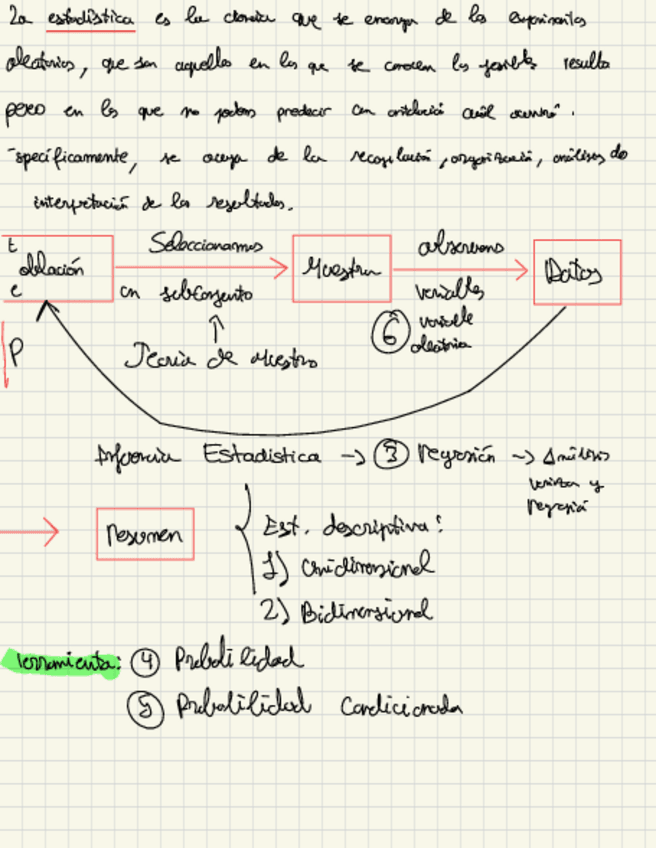 La estadística es la ciencia que se encarga de los experimentos
aleatorios, que son aquellos en los que se conocen los posibles resulta
pero en los que no podemos predecir con antelación cuál ocurrirá.
specíficamente, se ocupa de la recopilación, organización, análisis de
interpretación de los resultados.
t
oblación
e
Seleccionamos
un subconjunto
Muestra
observamos
variables
Datos
6
variable
aleatoria
P
Teoría de muestras
Inferencia Estadística → 3 Regresión → Análisis
y
regresión
Resumen
Est. descriptiva:
1) Unidimensional
2) Bidimensional
erramienta: 4 Probabilidad
5 Probabilidad Condicionada